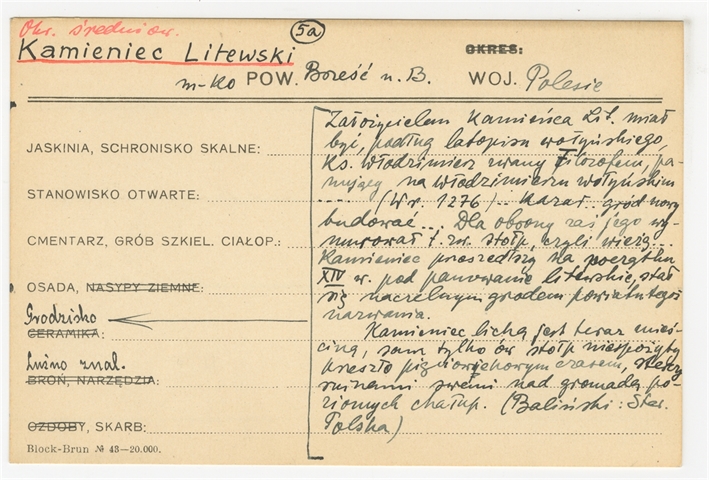 Okr. średniow.
5a
Kamieniec Litewski
OKRES:
m-ko POW. Brześć n. B. WOJ. Polesie
JASKINIA, SCHRONISKO SKALNE:
STANOWISKO OTWARTE:
CMENTARZ, GRÓB SZKIEL. CIAŁOP.:
OSADA, NASYPY ZIEMNE:
Grodzisko
CERAMIKA:
Luźno znal.
BROŃ, NARZĘDZIA:
OZDOBY, SKARB:
Block-Brun № 43—20.000.
Założycielem Kamieńca Lit. miał
być, podług latopisu wołyńskiego,
Ks. Włodzimierz zwany Filozofem, pa-
nujący na Włodzimierzu wołyńskim
---- (W r. 1276)... kazał... gród nowy
budować... Dla obrony zaś jego wy-
murował t. zw. stołp, czyli wieżą...
Kamieniec przeszedłszy na początku
XIV w. pod panowanie litewskie, stał
się naczelnym grodem powiatu tegoż
nazwania.
Kamieniec lichą jest teraz mieś-
ciną, sam tylko ów stołp niespożyty
przeszło pięciowiekowym czasem, sterczy
ruinami swemi nad gromadą po-
ziomych chałup. (Baliński: Star.
Polska)